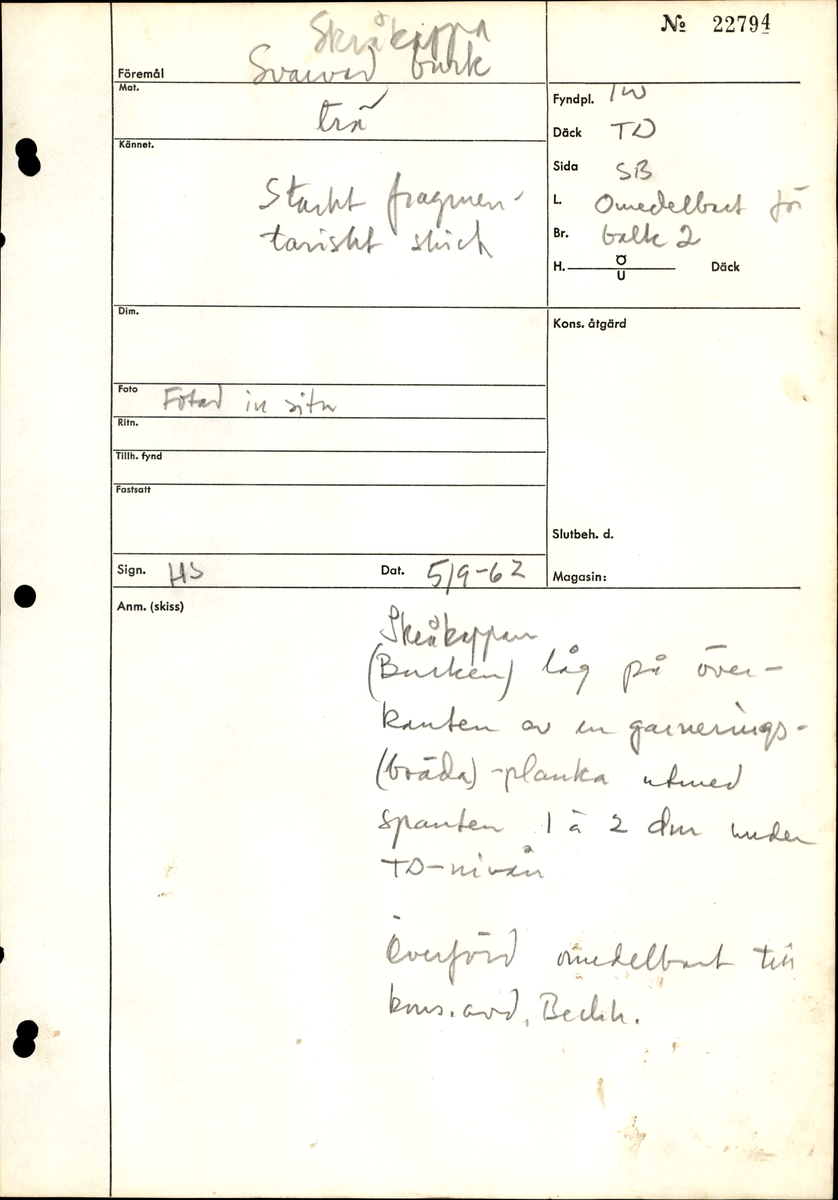 № 22794
Skråkäppa
Föremål Svarvad burk
Mat.
trä
Kännet.
Starkt fragmen-
tariskt skick
Fyndpl. IW
Däck TD
Sida SB
L. Omedelbart för
Br. balk 2
H. Ö Däck
U
Dim.
Kons. åtgärd
Foto Fotad in situ
Ritn.
Tillh. fynd
Fastsatt
Slutbeh. d.
Sign. HS Dat. 5/9-62
Magasin:
Anm. (skiss)
Skråkäppan
(Burken) låg på över-
kanten av en garnerings-
(bräda)-planka utmed
spanten 1 à 2 dm under
TD-nivån
Överförd omedelbart till
kons.avd, Beckh.